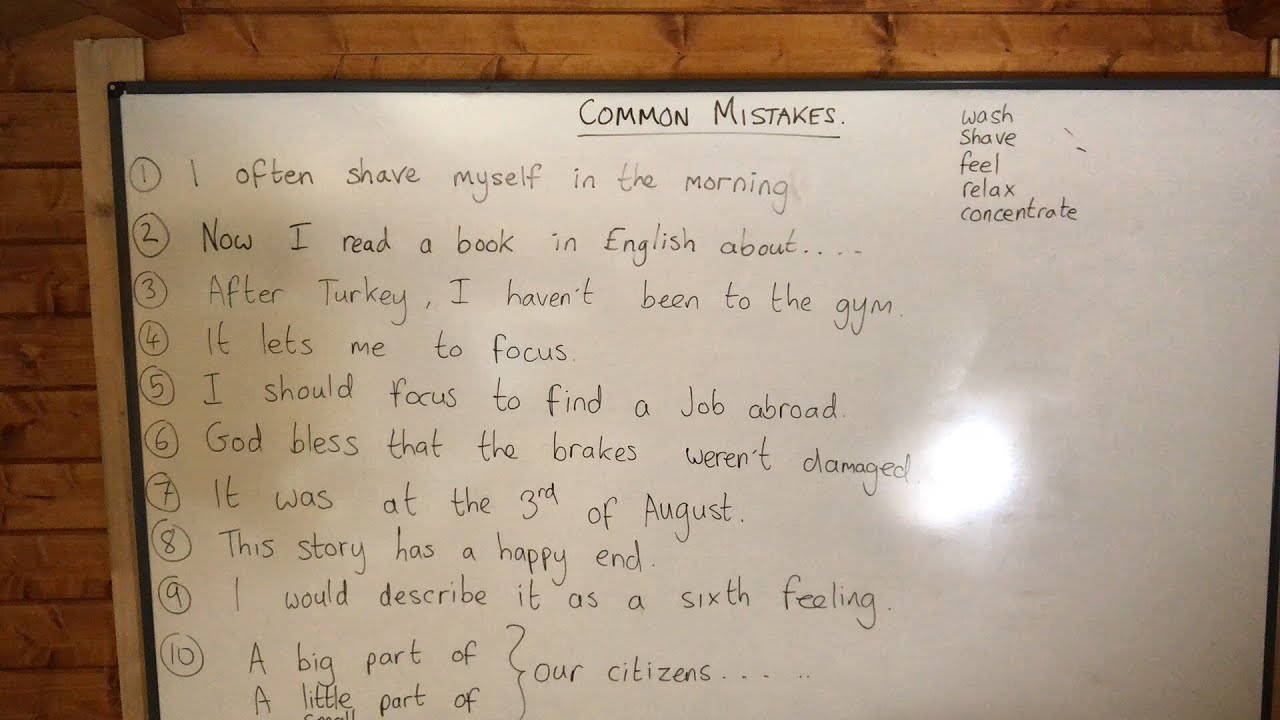 COMMON MISTAKES.
wash
shave
feel
relax
concentrate
① I often shave myself in the morning
② Now I read a book in English about....
③ After Turkey, I haven't been to the gym.
④ It lets me to focus.
⑤ I should focus to find a Job abroad.
⑥ God bless that the brakes weren't damaged.
⑦ It was at the 3rd of August.
⑧ This story has a happy end.
⑨ I would describe it as a sixth feeling.
⑩ A big part of } our citizens.... ..
A little part of
small